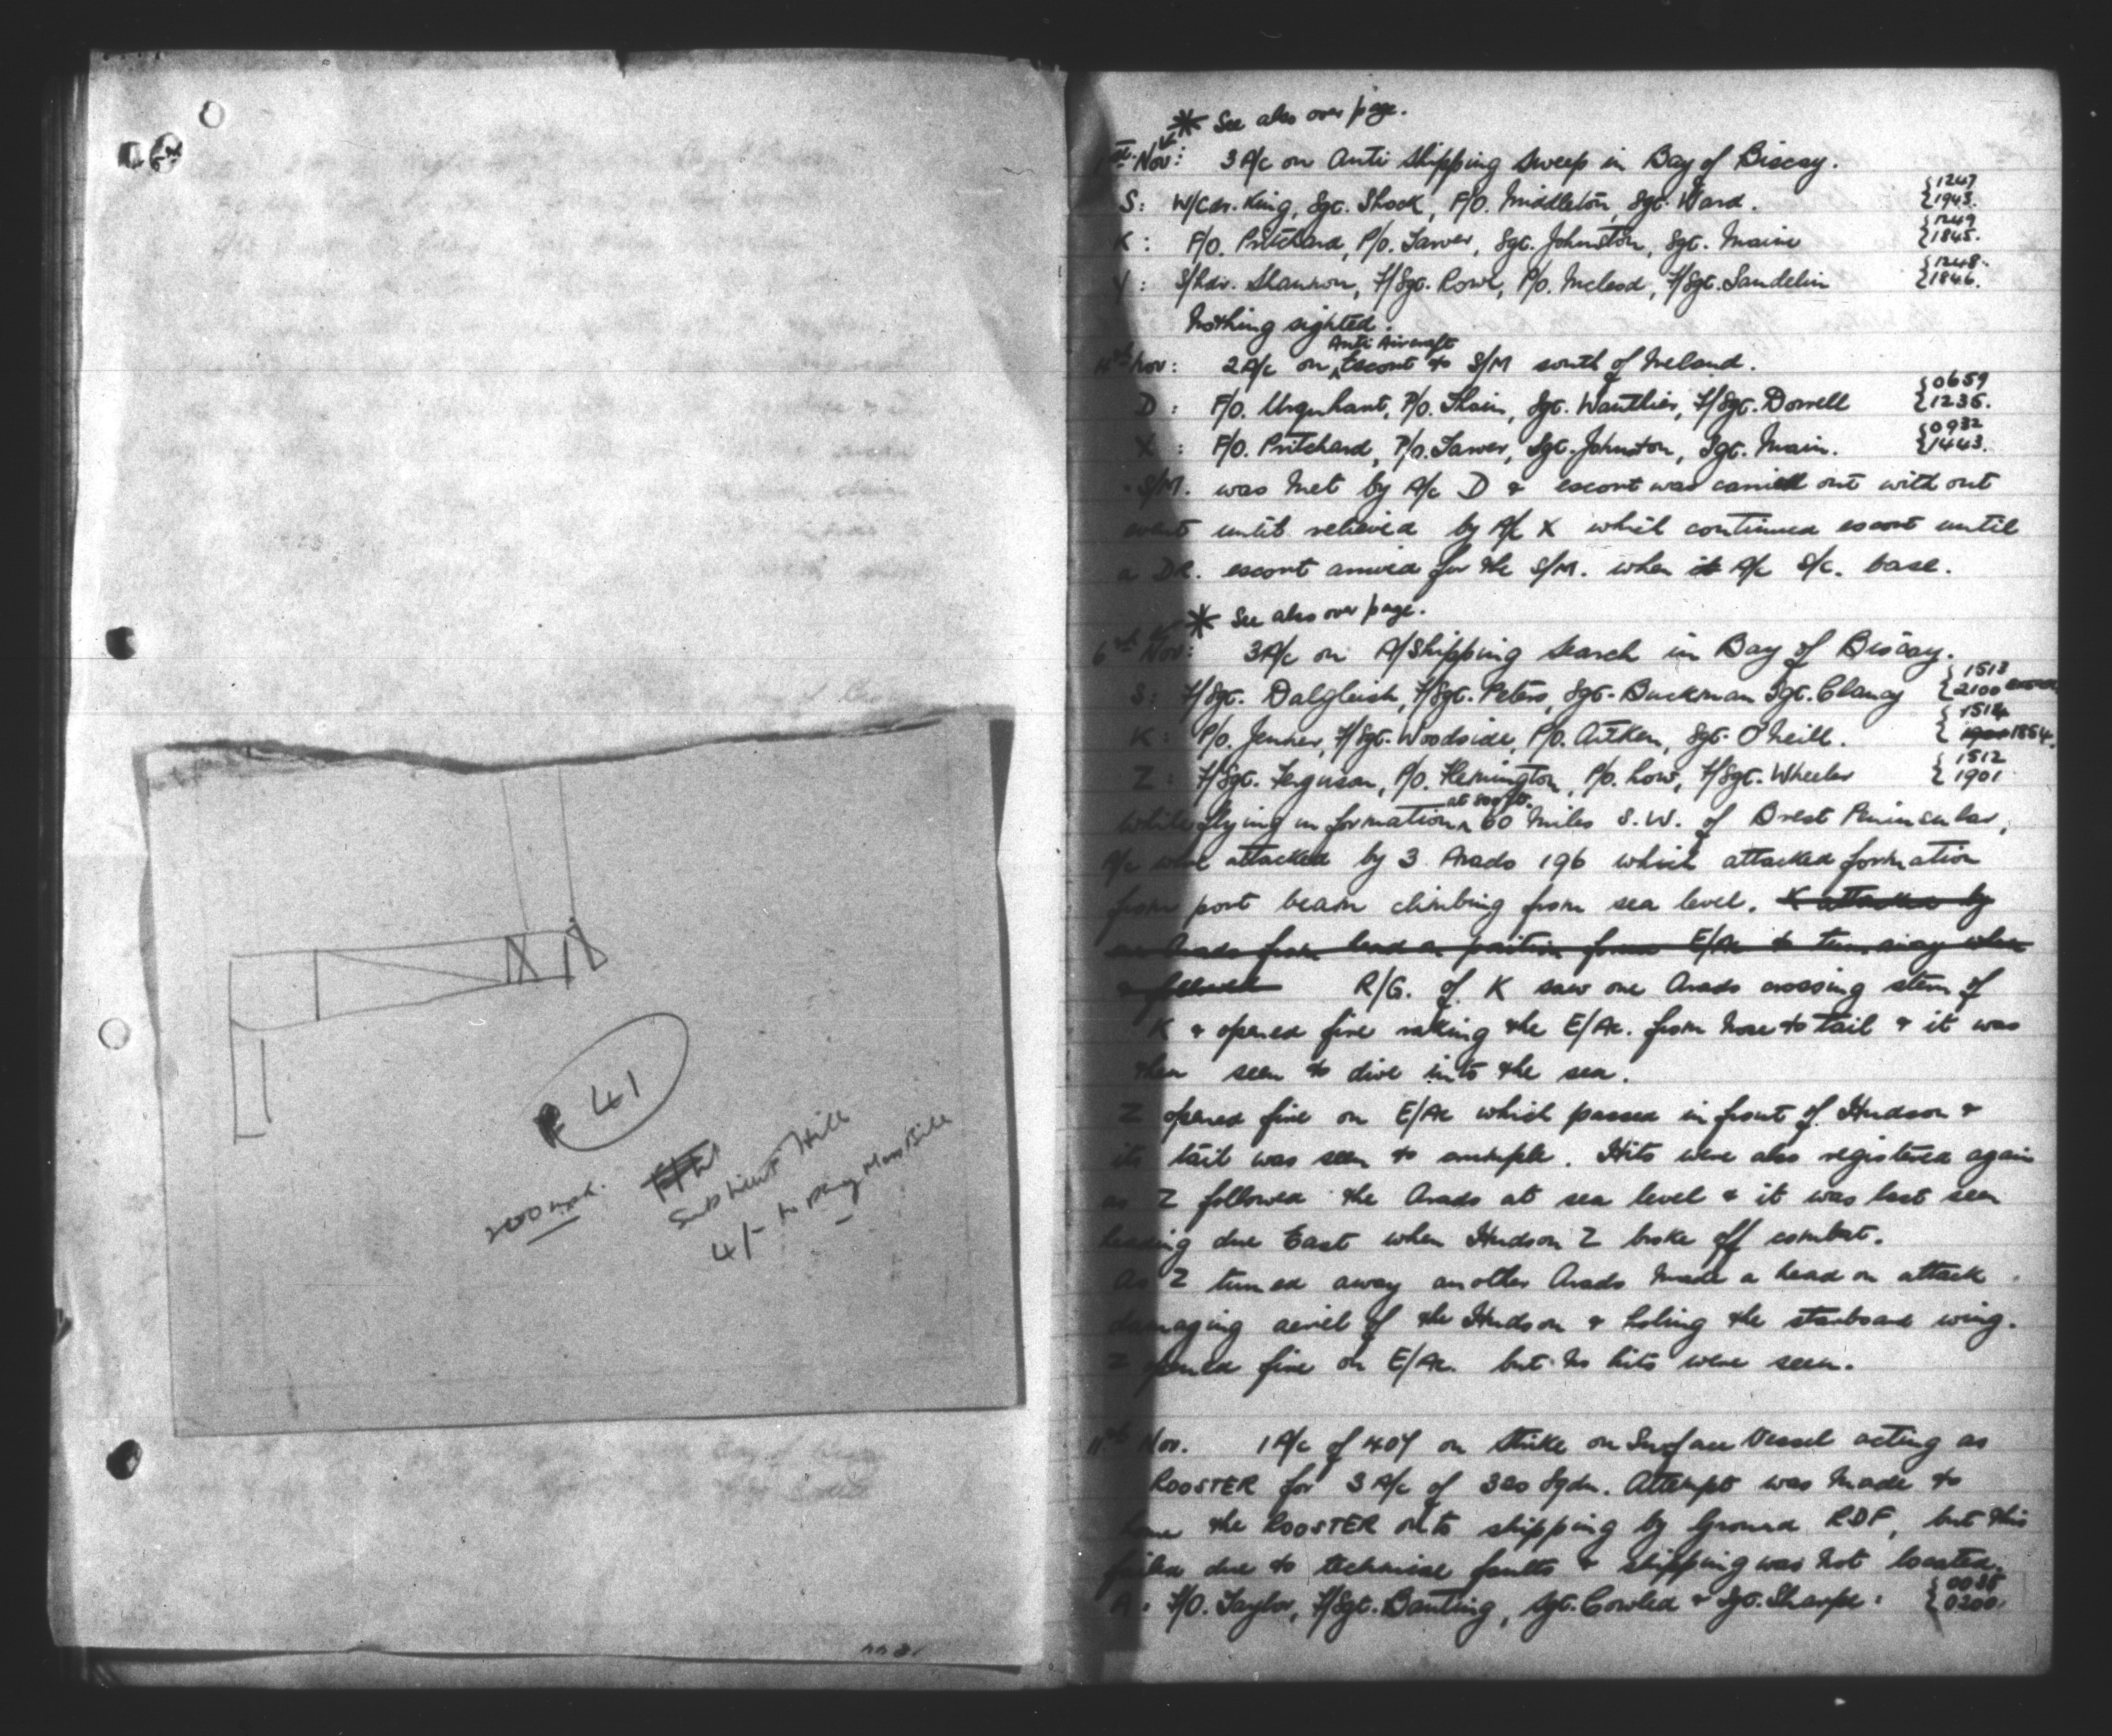 41
2000 mph.
Sub Lieut Hill
4/- to pay Mess Bill
* See also over page.
1st Nov: 3 A/c on Anti Shipping Sweep in Bay of Biscay.
S: W/Cdr. King, Sgt. Shock, F/O. Middleton, Sgt. Ward. {1247 {1945.
K: F/O. Pritchard, P/O. Tarver, Sgt. Johnston, Sgt. Maine {1249 {1845.
Y: S/Ldr. Shannon, F/Sgt. Rowe, P/O. McLeod, F/Sgt. Sandelin {1248. {1846.
Nothing sighted.
Nov: 2 A/c on Anti Aircraft Escort to S/M south of Ireland.
D: F/O. Urquhart, P/O. Thain, Sgt. Wauthier, F/Sgt. Dorrell {0659 {1235.
X: F/O. Pritchard, P/O. Tarver, Sgt. Johnston, Sgt. Main. {0932 {1443.
S/M. was met by A/c D & escort was carried out without
event until relieved by A/c X which continued escort until
a DR. escort arrived for the S/M. when A/c S/c. base.
* See also over page.
6th Nov: 3 A/c on A/Shipping search in Bay of Biscay.
S: F/Sgt. Dalgliesh, F/Sgt. Peters, Sgt. Buckman Sgt. Clancy {1513 {2100
K: P/O. Jenner, F/Sgt. Woodside, P/O. Aitken, Sgt. O'Neill. {1514 {1854.
Z: F/Sgt. Ferguson, P/O. Flemington, P/O. Low, F/Sgt. Wheeler {1512 {1901
While flying in formation at 500 ft. 60 miles S.W. of Brest Peninsular,
A/c were attacked by 3 Arado 196 which attacked formation
from port beam climbing from sea level. K attacked by
an Arado from head on position forced E/Ac to turn away when
& followed R/G. of K saw one Arado crossing stern of
K & opened fire raking the E/Ac. from nose to tail & it was
then seen to dive into the sea.
Z opened fire on E/Ac which passed in front of Hudson &
its tail was seen to crumple. Hits were also registered again
as Z followed the Arado at sea level & it was last seen
heading due East when Hudson Z broke off combat.
As Z turned away another Arado made a head on attack
damaging aeriel of the Hudson & holing the starboard wing.
Z opened fire on E/Ac. but no hits were seen.
11th Nov. 1 A/c of 407 on Strike on Surface Vessel acting as
ROOSTER for 3 A/c of 320 Sqdn. Attempt was made to
home the ROOSTER onto shipping by Ground RDF, but this
failed due to technical faults & shipping was not located.
A: F/O. Taylor, F/Sgt. Banting, Sgt. Cowled & Sgt. Sharpe: {0035 {0200.